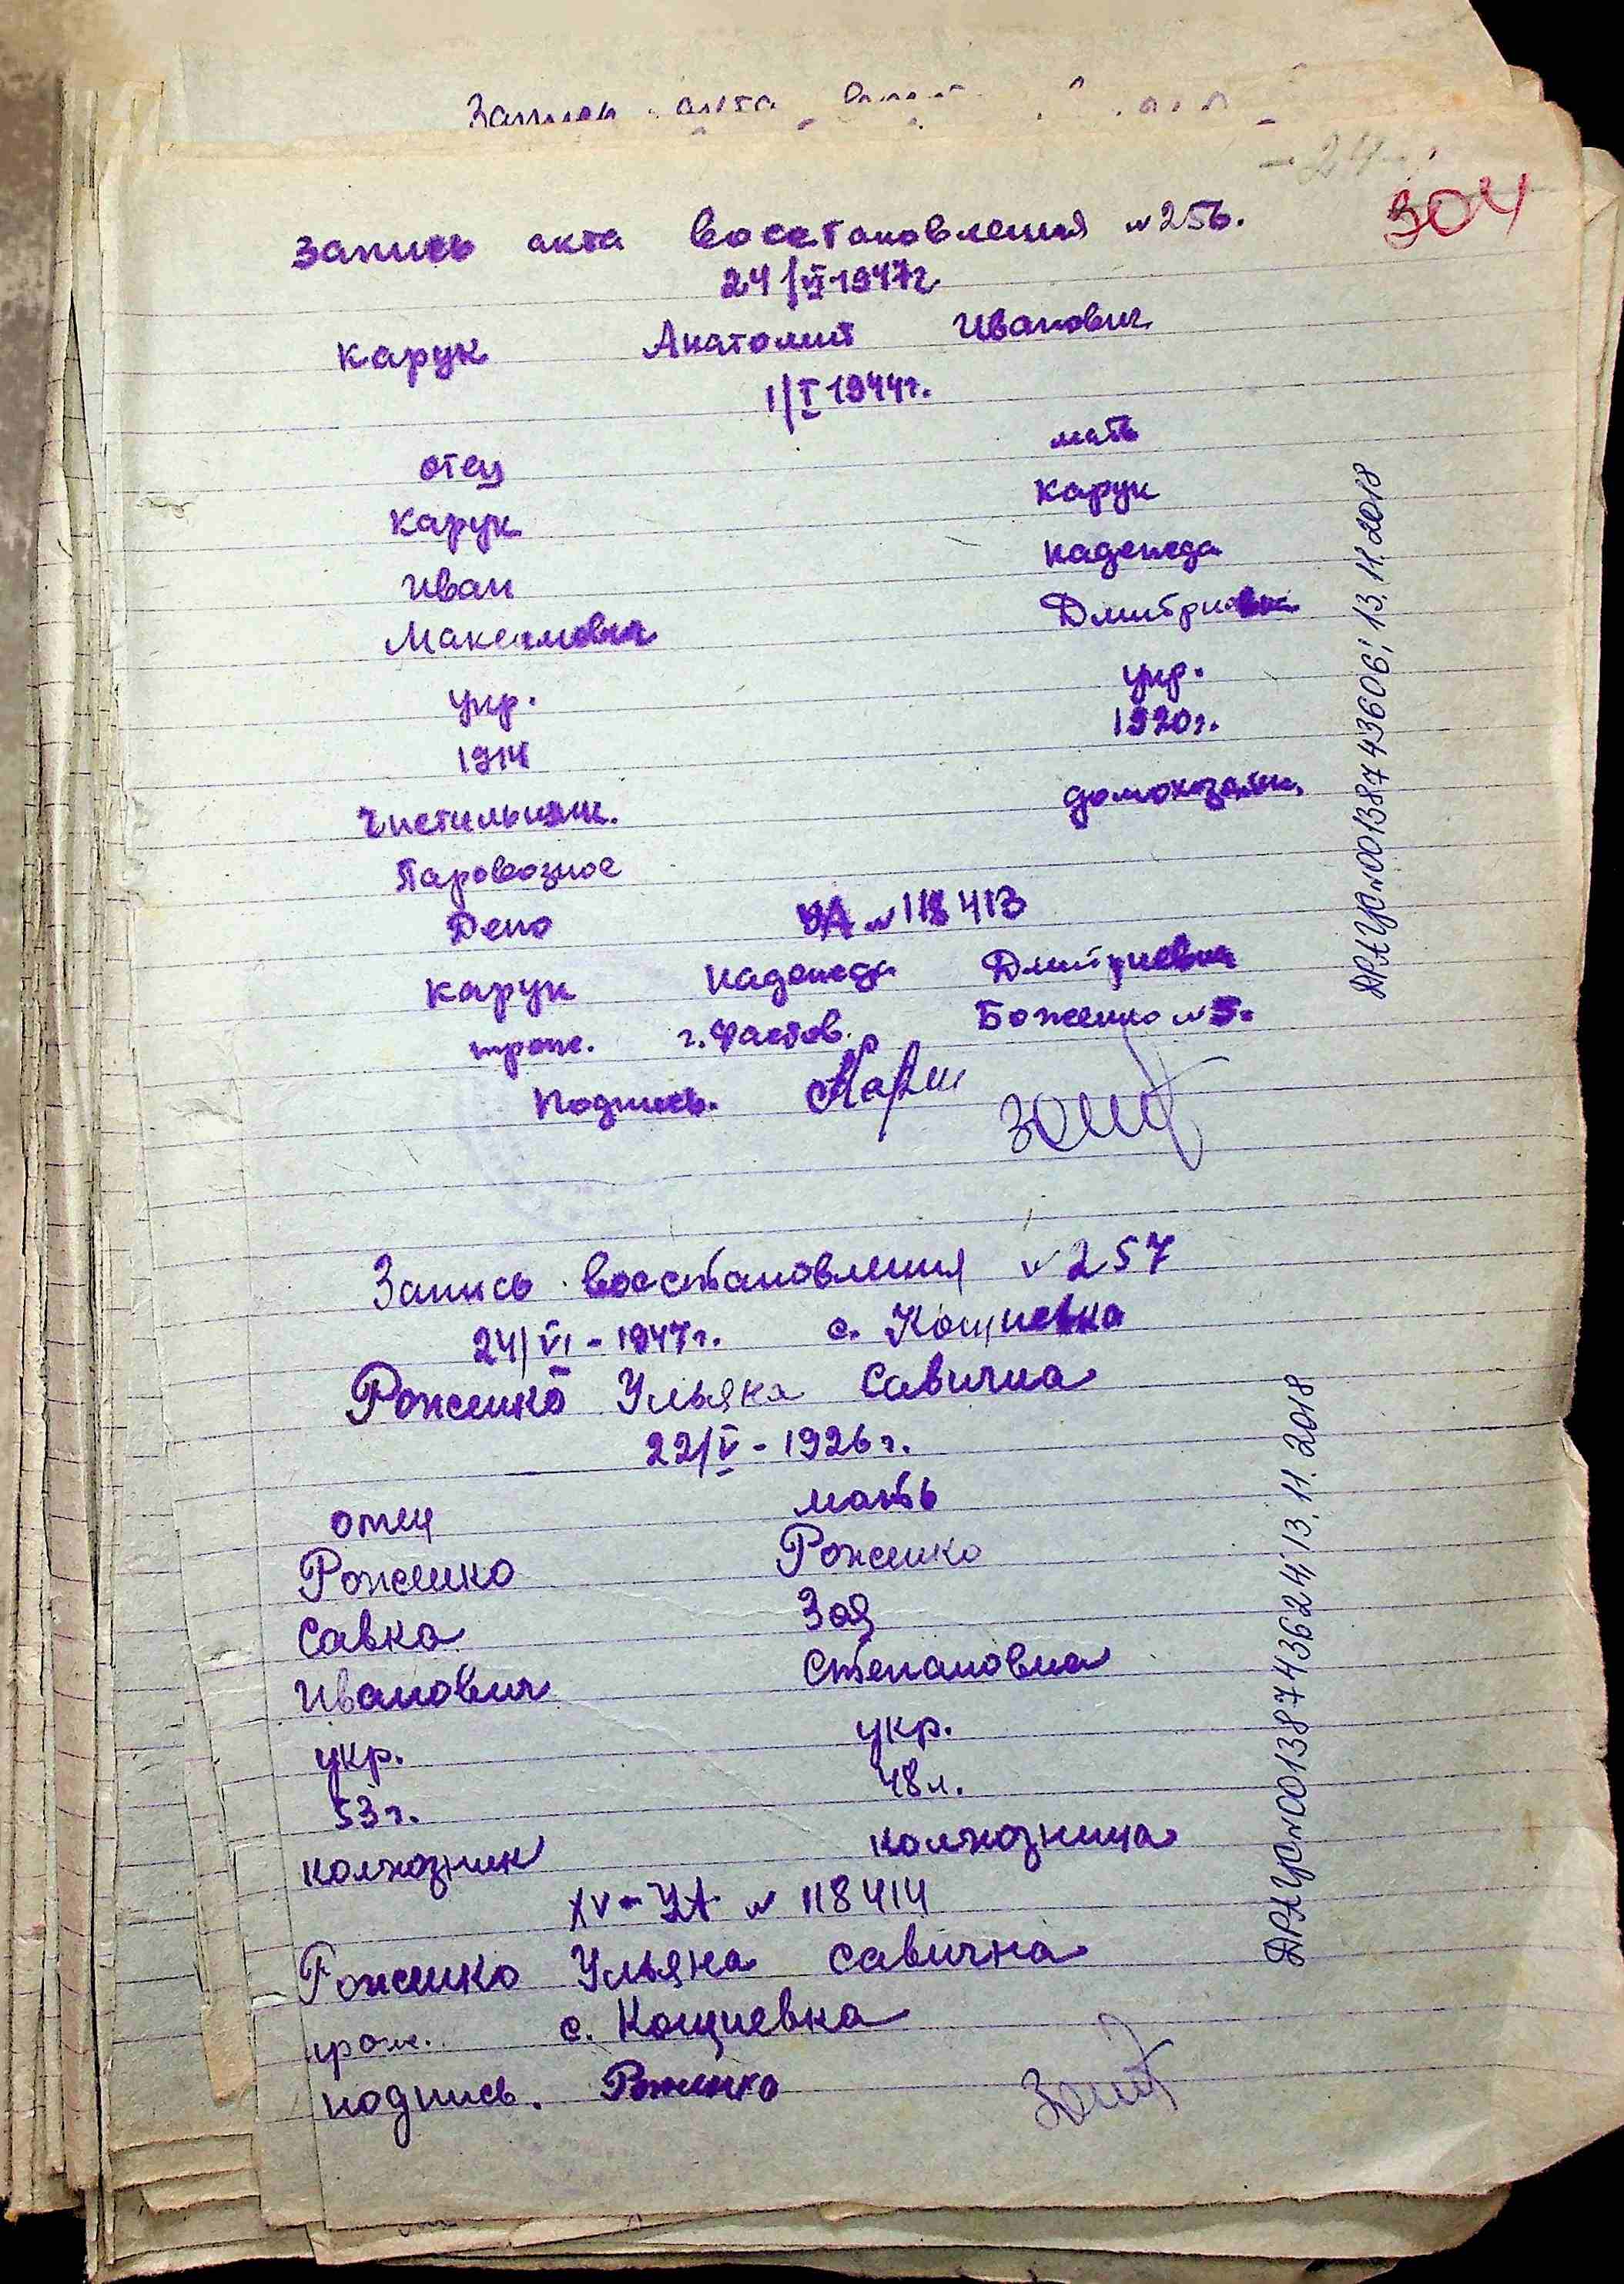 Запись акта
304
Запись акта восстановления №256.
24/VI 1947г.
Карук Анатолий Иванович
1/I 1944г.
отец мать
Карук Карук
Иван Надежда
Максимович Дмитриевна
укр. укр.
1914 1920г.
Чистильщик. домохозяйк.
Паровозное
Депо УА №118413
Карук Надежда Дмитриевна
прож. г. Фастов. Боженко №5.
Подпись.
ДРАЦС №00138743606; 13.11.2018
Запись восстановления №257
24/VI - 1947г. с. Кощиевка
Роженко Ульяна Савична
22/V - 1926г.
отец мать
Роженко Роженко
Савка Зоя
Иванович Степановна
укр. укр.
53г. 48л.
колхозник колхозница
XV-УА № 118414
Роженко Ульяна Савична
прож. с. Кощиевка
подпись. Роженко
ДРАЦС №00138743624; 13.11.2018